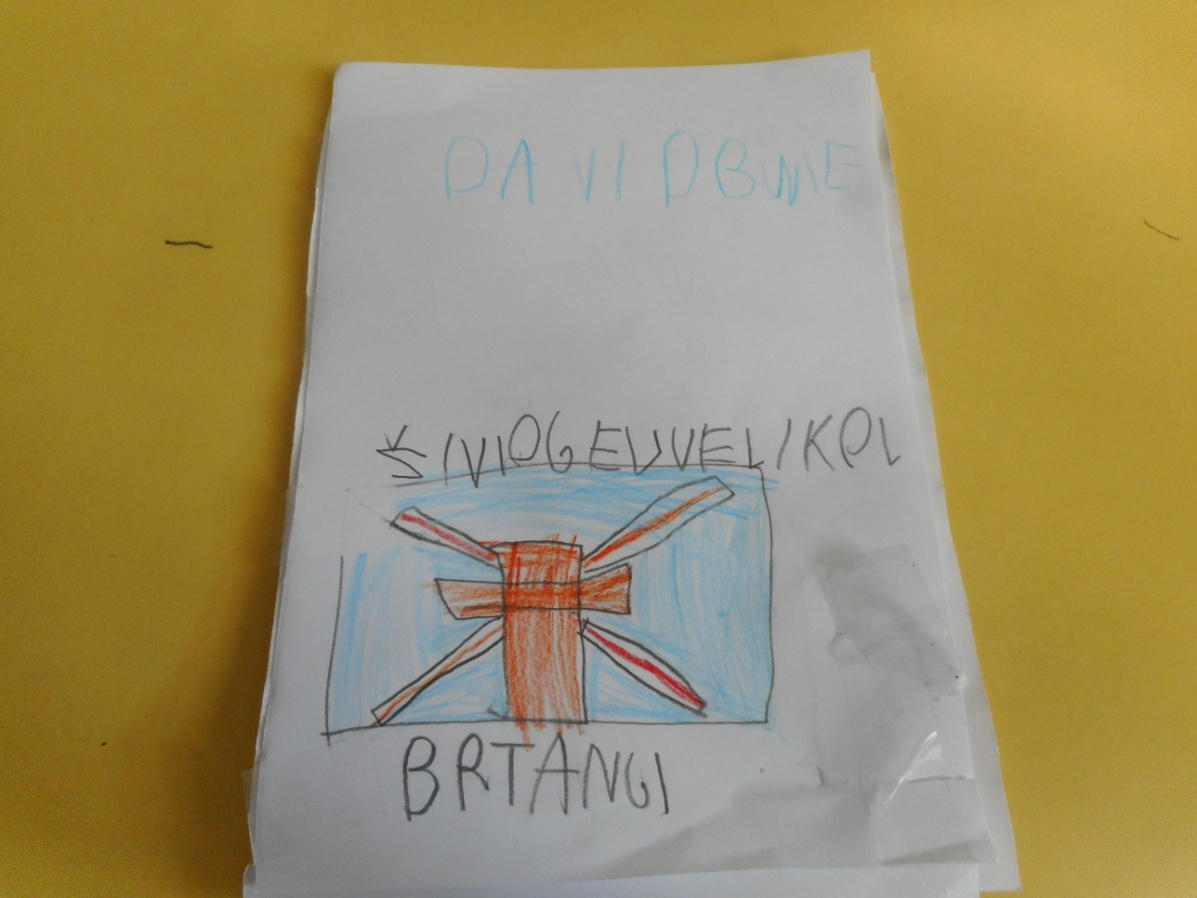 DAVIDBWIE
ŽIVIOGEUVELIKOI
BRTANGI